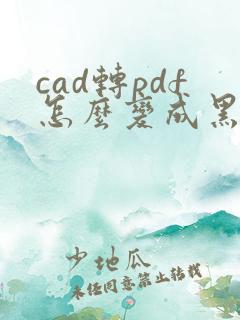 cad轉pdf
怎麼變成黑
少地瓜
未经同意禁止转载